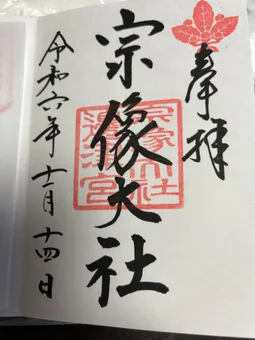 奉拝
宗像大社
令和六年十一月十四日
宗像大社
邊津宮